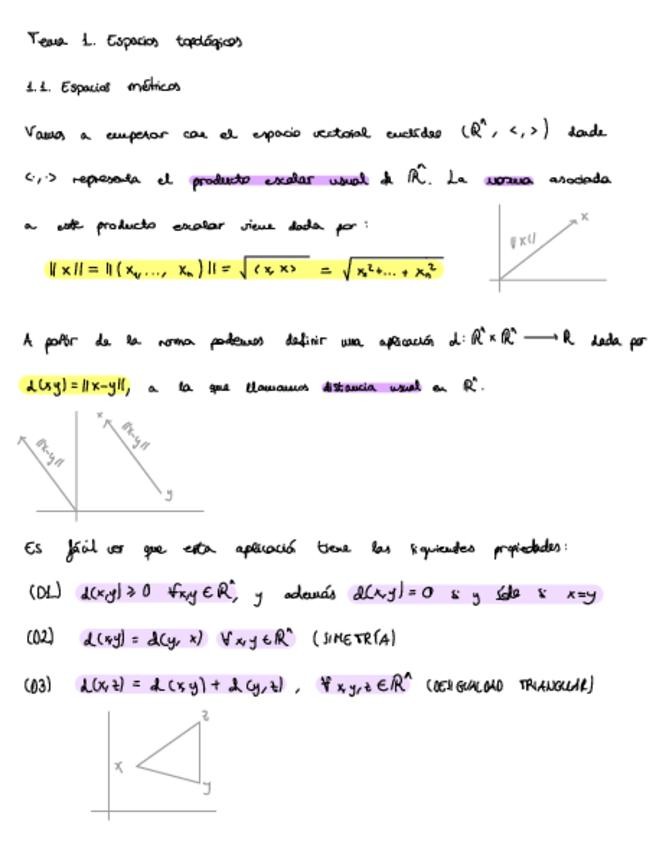 Tema 1. Espacios topológicos
1.1. Espacios métricos
Vamos a empezar con el espacio vectorial euclídeo (ℝⁿ, <,>) donde
<·,·> representa el producto escalar usual de ℝⁿ. La norma asociada
a este producto escalar viene dada por:
x
||x||
||x|| = ||(x₁,..., xₙ)|| = √<x, x> = √x₁²+...+xₙ²
A partir de la norma podemos definir una aplicación d: ℝⁿ×ℝⁿ → ℝ dada por
d(x,y)=||x-y||, a la que llamamos distancia usual en ℝⁿ.
x
||x-y|| ||x-y||
y
Es fácil ver que esta aplicación tiene las siguientes propiedades:
(D1) d(x,y) ≥ 0 ∀x,y ∈ ℝⁿ, y además d(x,y)=0 si y sólo si x=y
(D2) d(x,y) = d(y, x) ∀x,y ∈ ℝⁿ (SIMETRÍA)
(D3) d(x,z) = d(x,y) + d(y,z), ∀x,y,z ∈ ℝⁿ (DESIGUALDAD TRIANGULAR)
z
x
y